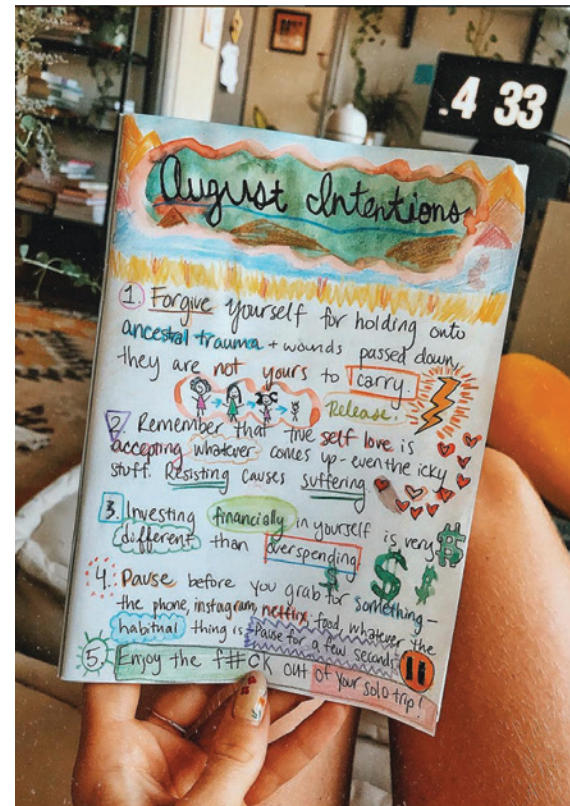 .4 33
August Intentions
1. Forgive yourself for holding onto
ancestral trauma + wounds passed down,
they are not yours to carry.
Release.
2. Remember that true self love is
accepting whatever comes up - even the icky
stuff. Resisting causes suffering.
3. Investing financially in yourself is very
different than overspending
$ $ $ $
4. Pause before you grab for something -
the phone, instagram, netflix, food, whatever the
habitual thing is. Pause for a few seconds
5. Enjoy the f##ck out of your solo trip!